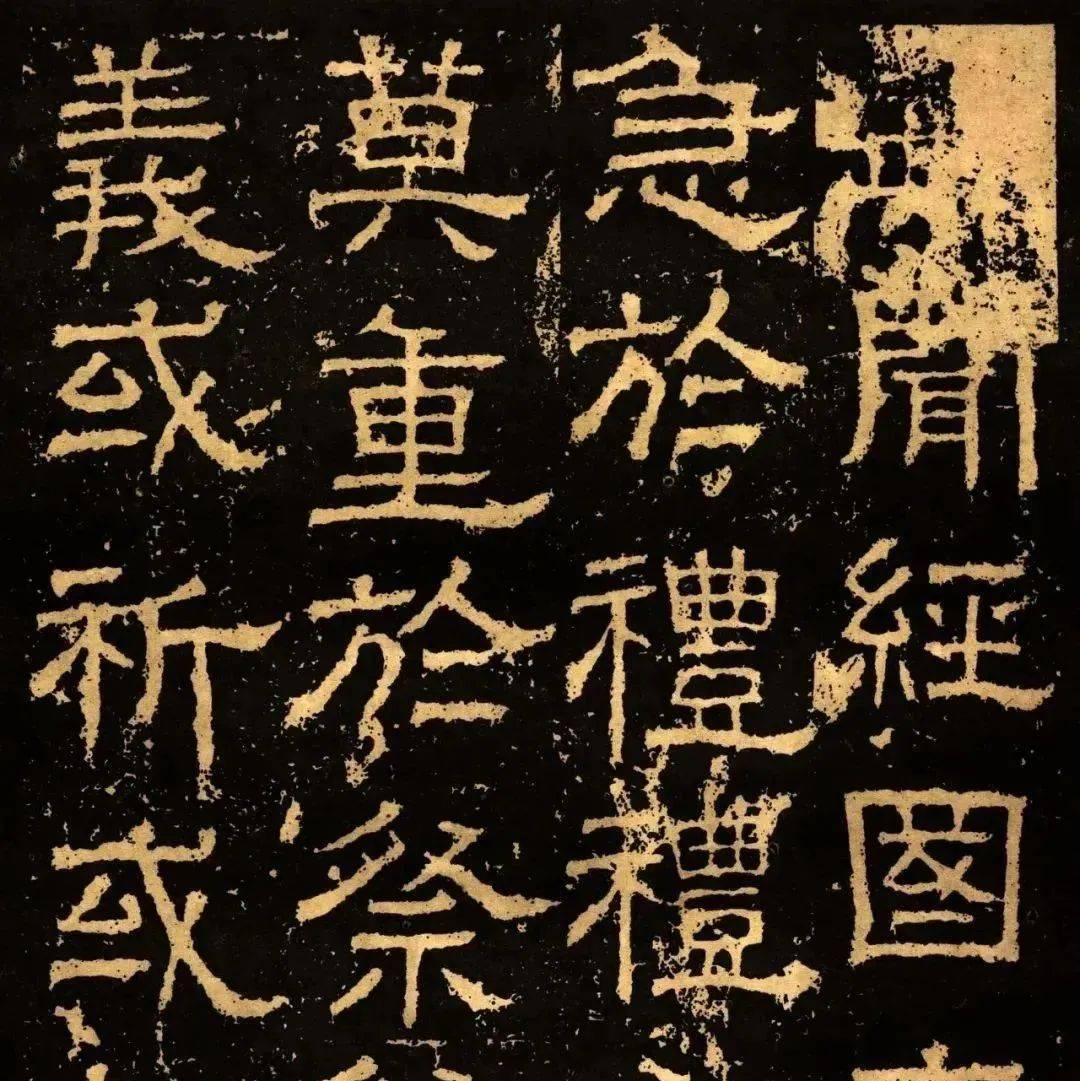 聞經國
急於禮禮
莫重於祭
義或祈或